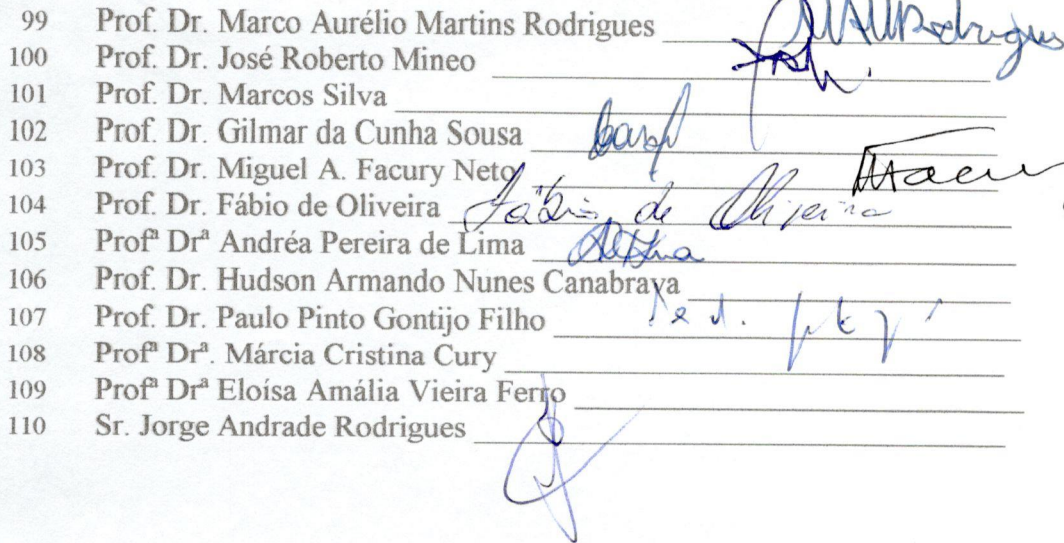 99 Prof. Dr. Marco Aurélio Martins Rodrigues MAMRodrigues
100 Prof. Dr. José Roberto Mineo
101 Prof. Dr. Marcos Silva
102 Prof. Dr. Gilmar da Cunha Sousa
103 Prof. Dr. Miguel A. Facury Neto
104 Prof. Dr. Fábio de Oliveira Fábio de Oliveira
105 Profª Drª Andréa Pereira de Lima
106 Prof. Dr. Hudson Armando Nunes Canabrava
107 Prof. Dr. Paulo Pinto Gontijo Filho
108 Profª Drª. Márcia Cristina Cury
109 Profª Drª Eloísa Amália Vieira Ferro
110 Sr. Jorge Andrade Rodrigues